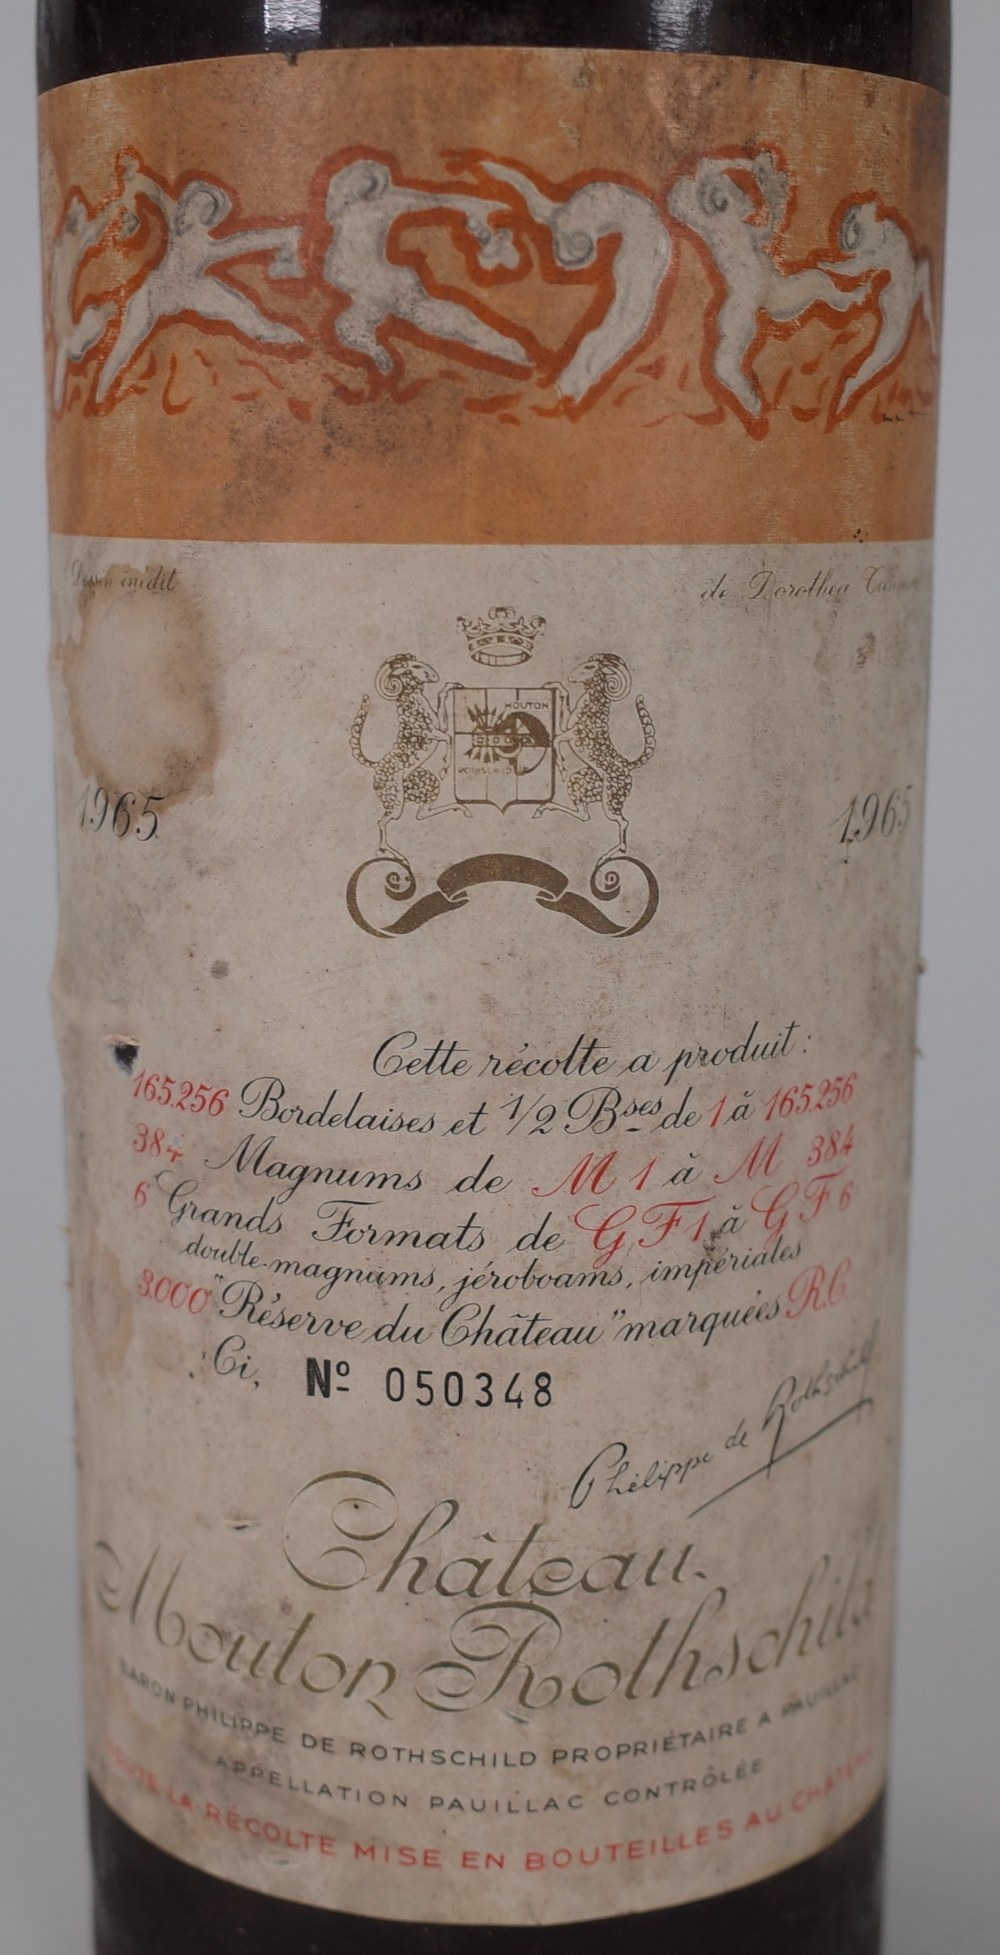 Dessin inédit de Dorothea
MOUTON
ROTHSCHILD
1965 1965
Cette récolte a produit :
165.256 Bordelaises et 1/2 Bses de 1 à 165.256
384 Magnums de M 1 à M 384
6 Grands Formats de G.F 1 à G F 6
double-magnums, jéroboams, impériales
3.000 "Réserve du Château" marquées R.C.
Ci, Nº 050348
Philippe de Rothschild
Château
Mouton Rothschild
BARON PHILIPPE DE ROTHSCHILD PROPRIÉTAIRE A PAUILLAC
APPELLATION PAUILLAC CONTRÔLÉE
TOUTE LA RÉCOLTE MISE EN BOUTEILLES AU CHÂTEAU